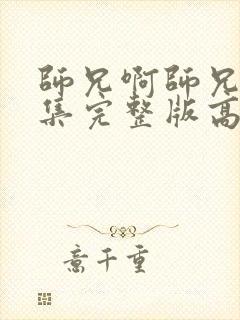 師兄啊師兄
集完整版高
意千重